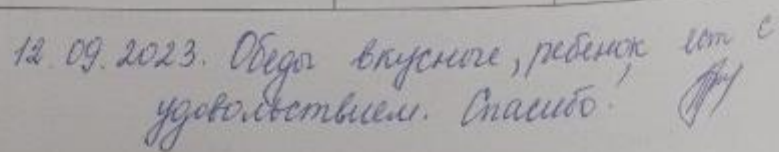 12.09.2023. Обеды вкусные, ребенок ест с
удовольствием. Спасибо!